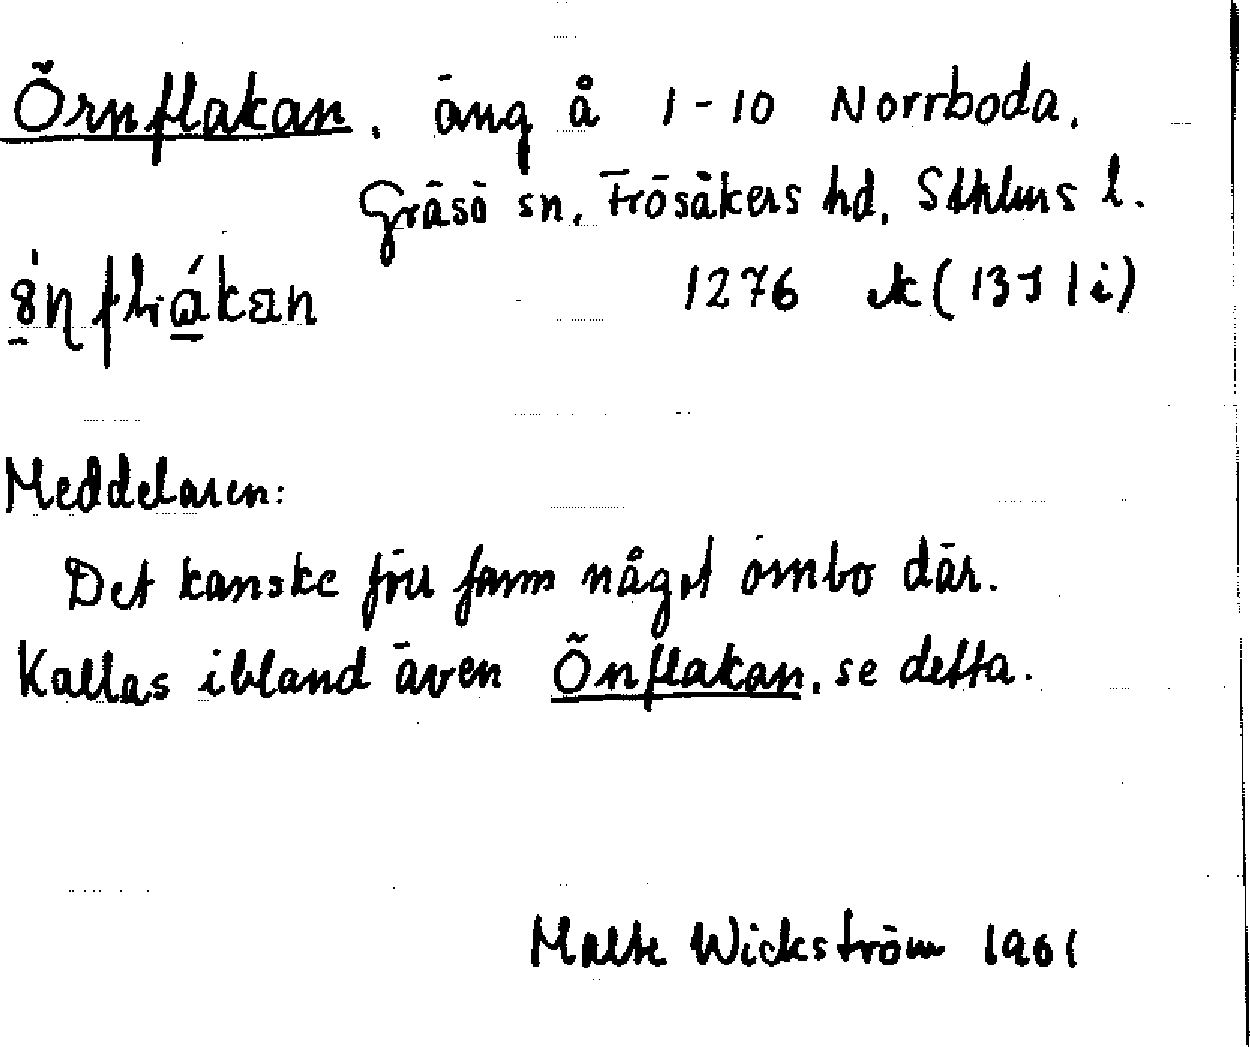 Örnflakan, äng å 1-10 Norrboda.
Gräsö sn, Frösåkers hd, Sthlms l.
1276 ek (13I 1 i)
Meddelaren:
Det kanske för fanns något örnbo där.
Kallas ibland även Önflakan, se detta.
Malte Wickström 1961